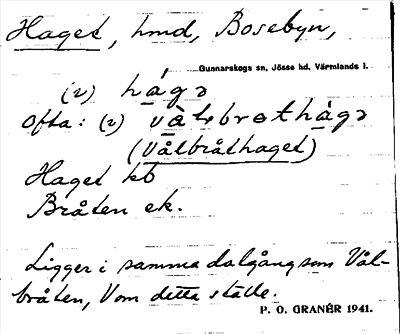 Haget, hmd, Bosebyn,
Gunnarskogs sn, Jösse hd, Värmlands l.
(v) hágə
Ofta: (v) vàlsbrothàgə
(Vålbråthaget)
Haget kb
Bråten ek.
Ligger i samma dalgång som Vål-
bråten, V om detta ställe.
P. O. GRANÉR 1941.